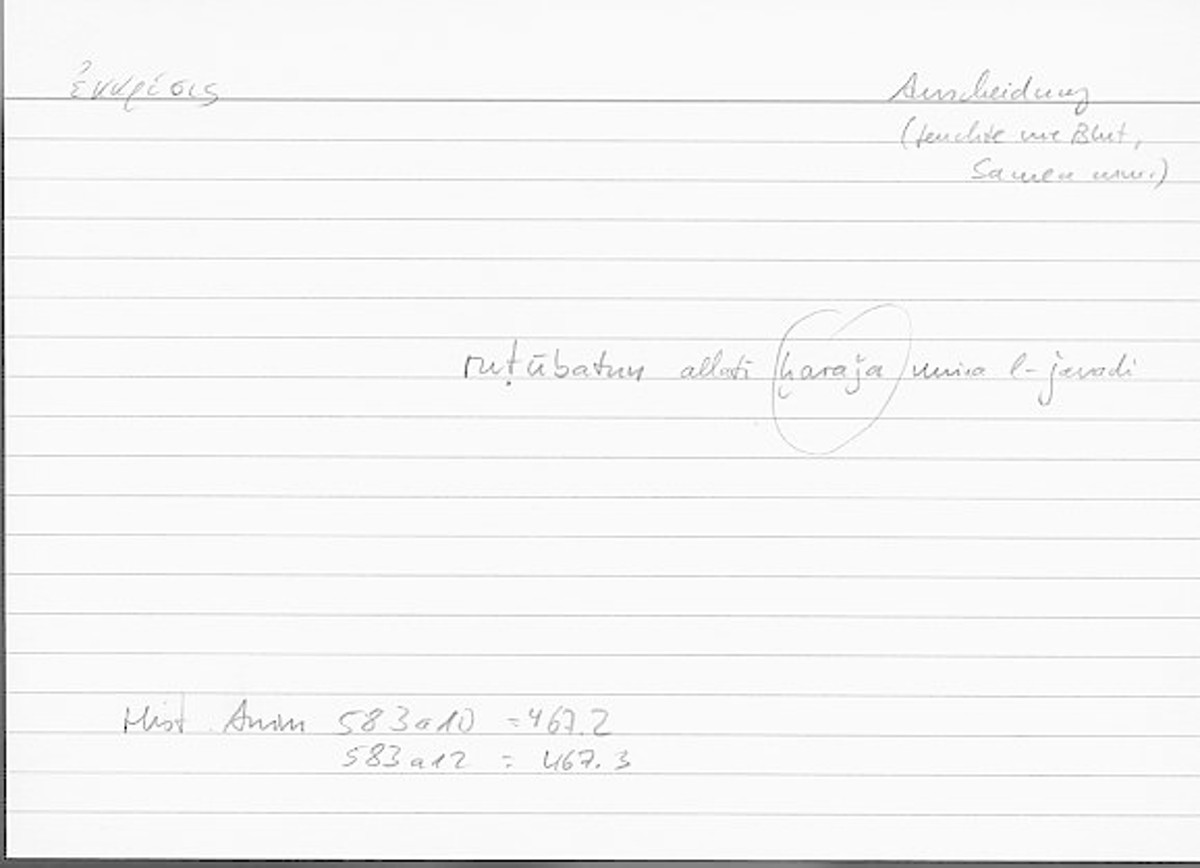 ἐκκρίσις Ausscheidung
(feuchte wie Blut,
Samen usw.)
ruṭūbatun allatī ḫaraǧa mina l-ǧasadi
Hist. Anim 583a10 = 467.2
583a12 = 467.3